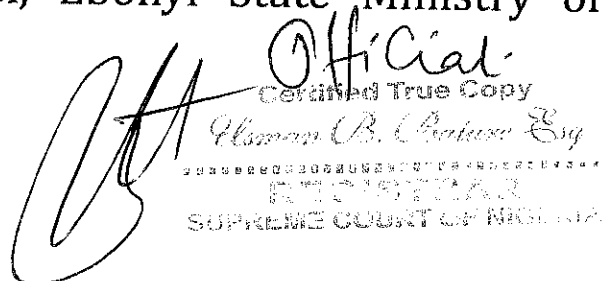 Ebonyi State Ministry of
Official.
Certified True Copy
Usman B. Esq
REGISTRAR
SUPREME COURT OF NIGERIA